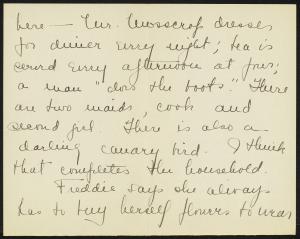 here — Mr. Mosscrop dresses
for dinner every night; tea is
served every afternoon at four;
a man "does the boots." There
are two maids, cook and
second girl. There is also a
darling canary bird. I think
that completes the household.
Freddie says she always
has to buy herself flowers to wear